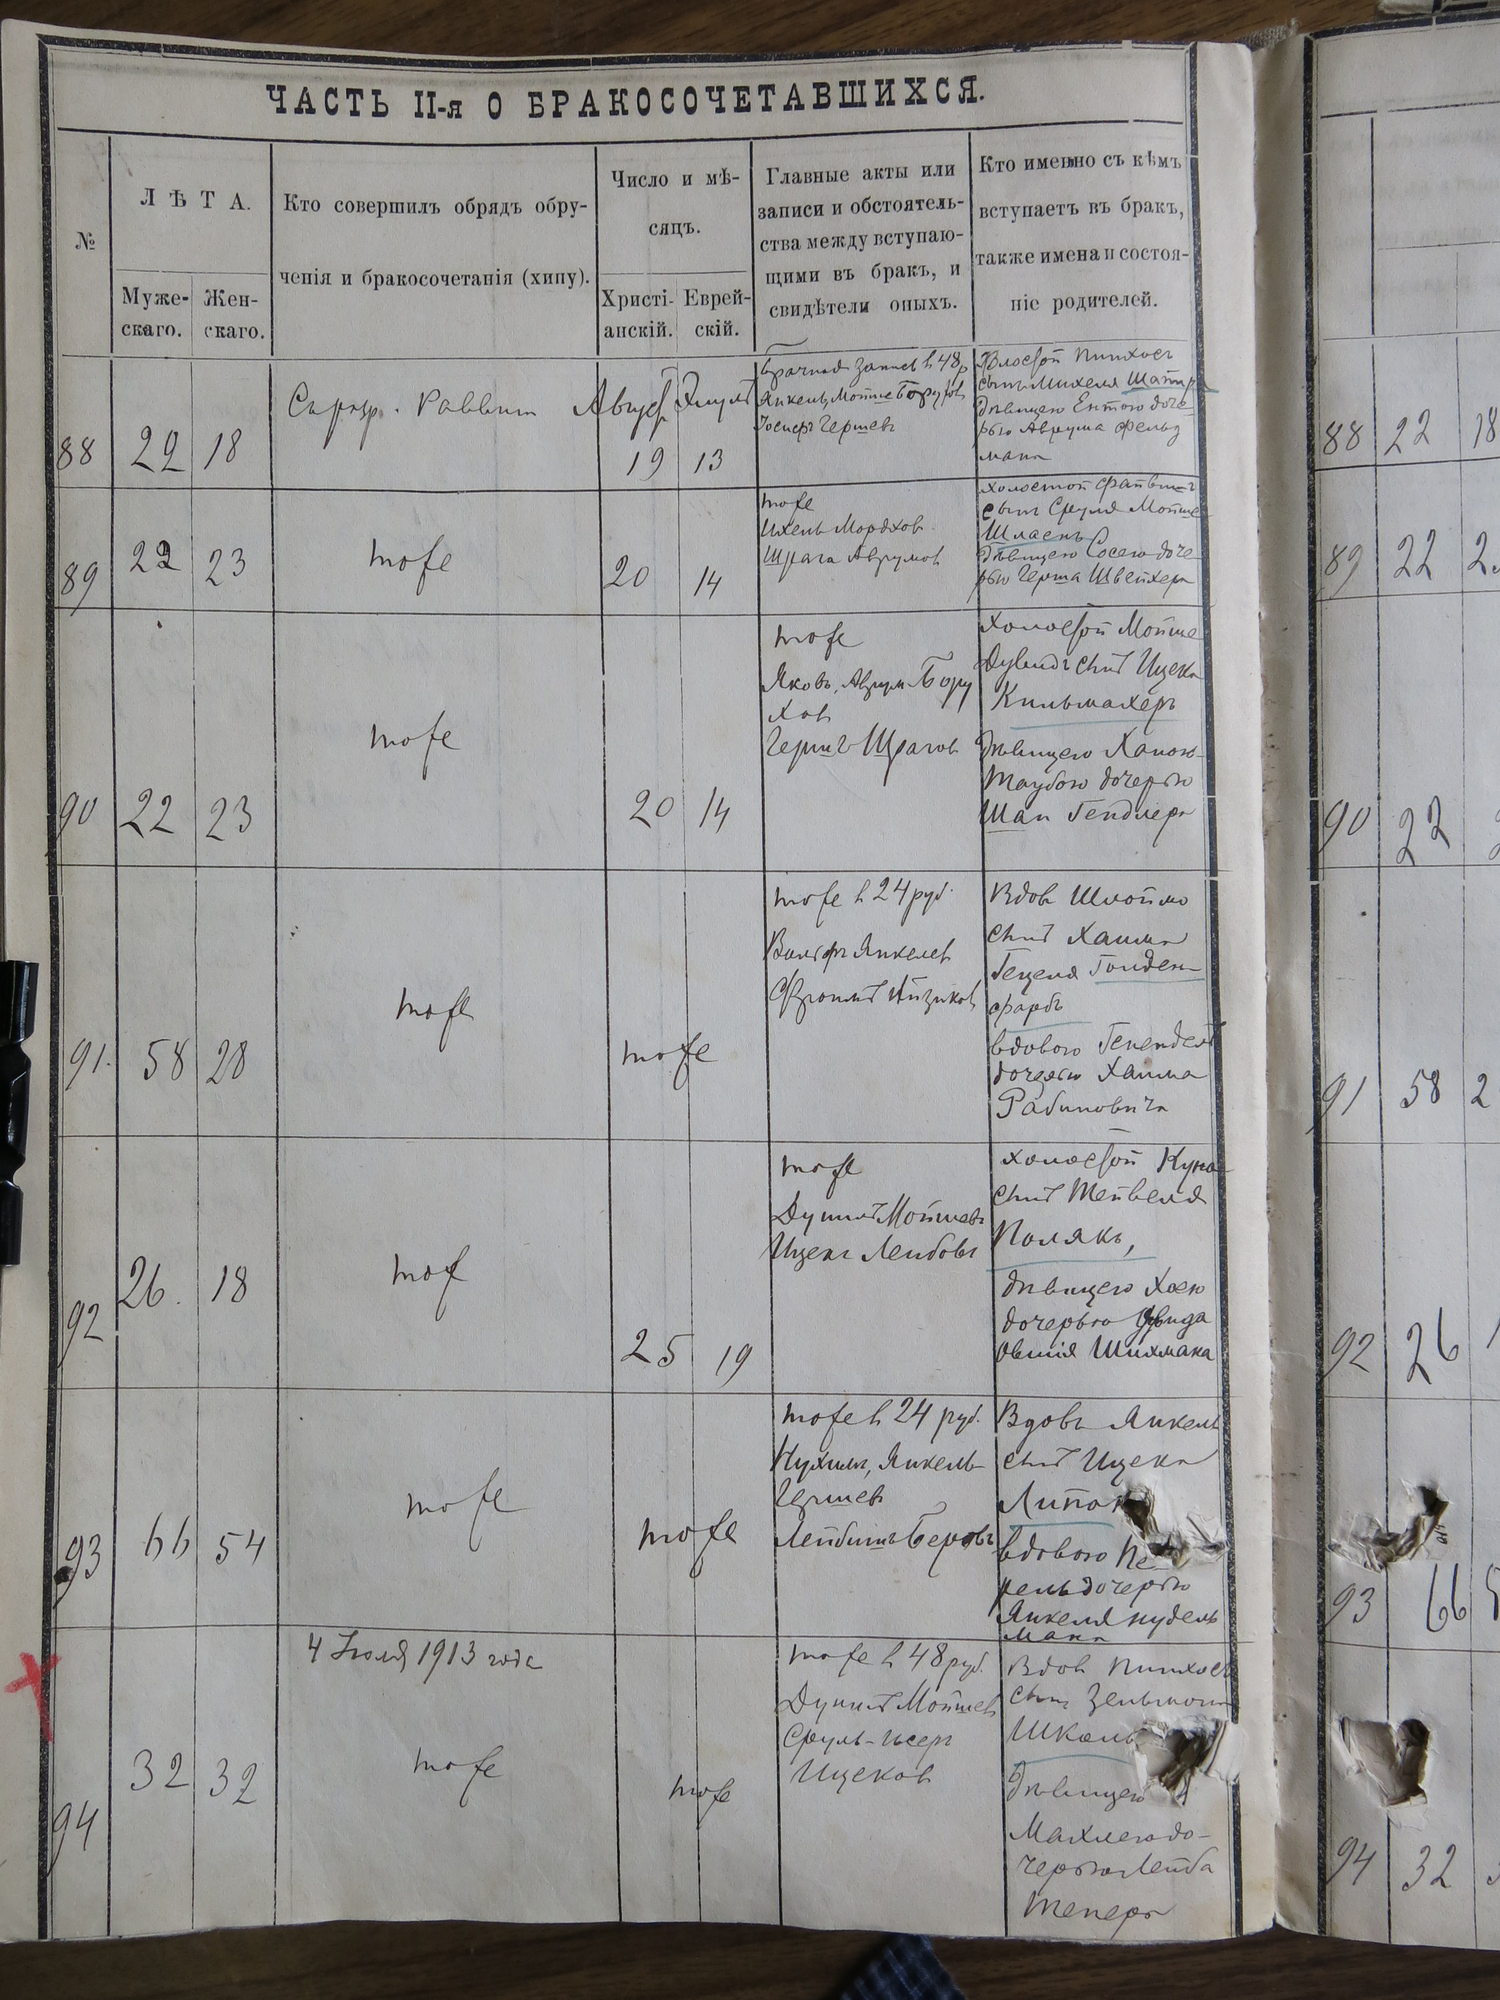 ЧАСТЬ II-я О БРАКОСОЧЕТАВШИХСЯ.
№
ЛѢТА.
Муже-
скаго.
Жен-
скаго.
Кто совершилъ обрядъ обру-
ченія и бракосочетанія (хипу).
Число и мѣ-
сяцъ.
Христі-
анскій.
Еврей-
скій.
Главные акты или
записи и обстоятель-
ства между вступаю-
щими въ бракъ, и
свидѣтели оныхъ.
Кто именно съ кѣмъ
вступаетъ въ бракъ,
также имена и состоя-
ніе родителей.
88
22
18
Раввин
Август
19
13
Брачная запись в 48 р
Янкель, Мойше
Иосифъ Гершевъ
Холостой Пинхосъ
сынъ Михеля
дѣвицею Ентою доче-
рью Аврума Фельд
мана
89
22
23
тоже
20
14
тоже
Ихель Мордхов
Шрага Аврумов
холостой
сынъ Сруля Мойше
дѣвицею Сосею доче-
рью Герша Швейцера
90
22
23
тоже
20
14
тоже
Яковъ, Аврум Бору
хов
Гершъ Шрагов
Холостой Мойше
Дувидъ сынъ Ицека
Кильмахеръ
дѣвицею Ханою
Таубою дочерью
Гендлера
91.
58
28
тоже
тоже
тоже в 24 руб.
Вольфъ Янкелев
Фроимъ Айзиков
Вдов Шлоймо
сынъ Хаима
Гецеля Гольден-
фарбъ
вдовою
дочерью Хаима
Рабиновича
92
26.
18
тоже
25
19
тоже
Мойшевъ
Ицекъ Лейбовъ
холостой
сынъ Тейвеля
Полякъ,
дѣвицею Хаею
дочерью
Шихмана
93
66
54
тоже
тоже
тоже в 24 руб.
Нухимъ, Янкель
Гершев
Лейбишъ Беровъ
Вдовъ Янкель
сынъ Ицека
вдовою Пе-
рель дочерью
Янкеля Нудель
мана
94
32
32
4 Іюля 1913 года
тоже
тоже
тоже в 48 руб.
Мойшев
Сруль-Іосеръ
Ицеков
Вдов Пинхос
сынъ
дѣвицею
Махлею до-
черью Лейба
Тепера
88
22
18
89
22
90
22
91
58
2
92
26
93
66
94
32